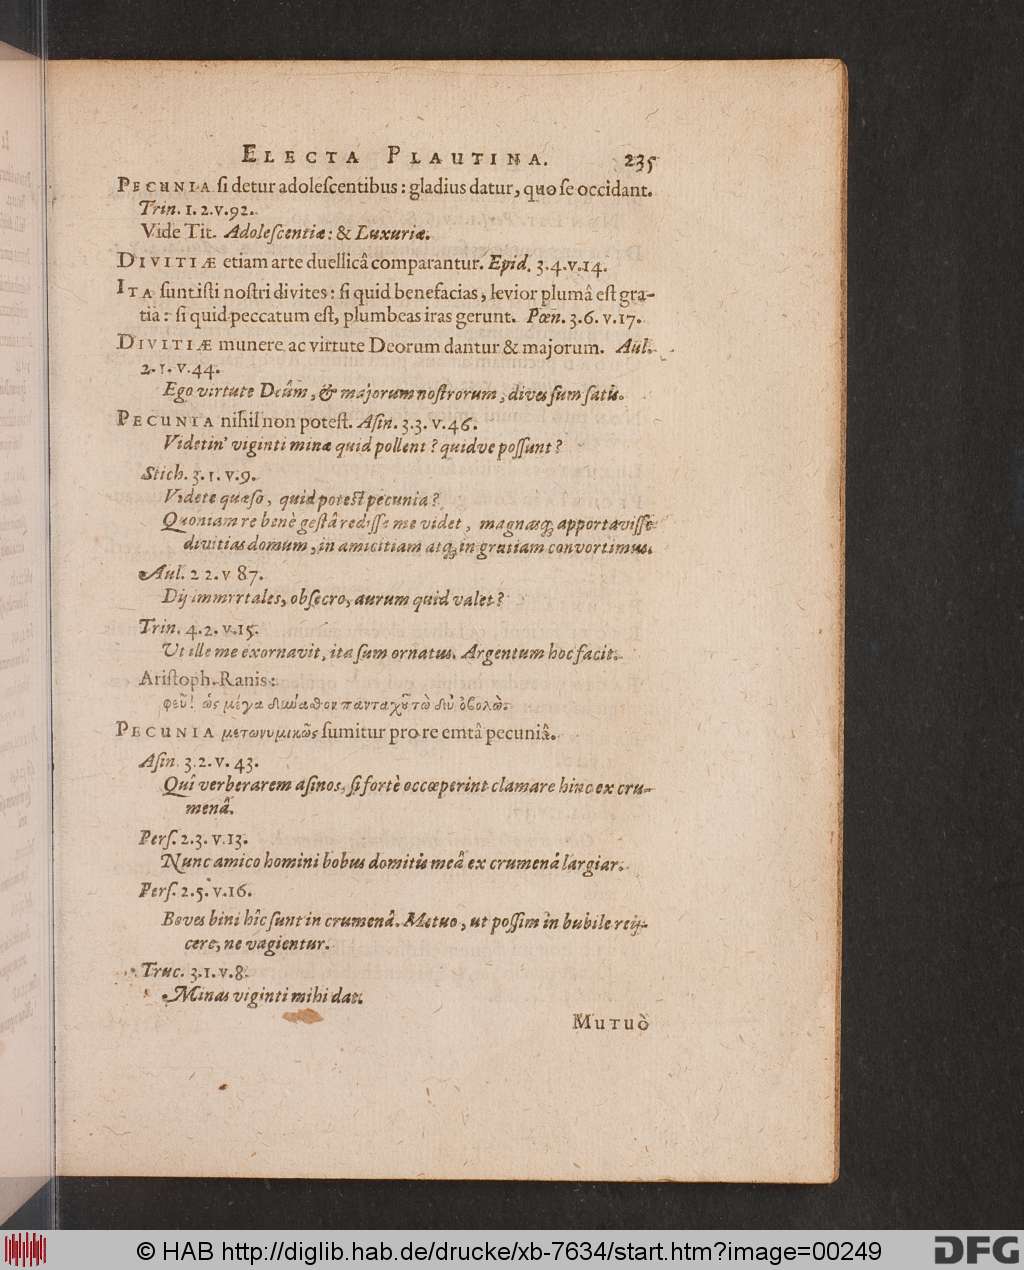 ELECTA PLAUTINA. 235
PECUNIA si detur adolescentibus: gladius datur, quo se occidant.
Trin. 1. 2. v. 92.
Vide Tit. Adolescentiæ: & Luxuriæ.
DIVITIÆ etiam arte duellicâ comparantur. Epid. 3.4.v.14.
ITA sunt isti nostri divites: si quid benefacias, levior plumâ est gra-
tia: si quid peccatum est, plumbeas iras gerunt. Pœn. 3.6. v.17.
DIVITIÆ munere ac virtute Deorum dantur & majorum. Aul.
2. 1. v.44.
Ego virtute Deûm, & majorum nostrorum, dives sum satis.
PECUNIA nihil non potest. Asin. 3.3. v.46.
Videtin' viginti minæ quid pollent? quidve possunt?
Stich. 3. 1. v.9.
Videte quæso, quid potest pecunia?
Quoniam re benè gestâ redisse me videt, magnasq; apportavisse
divitias domum, in amicitiam atq; in gratiam convortimus.
Aul. 2 2. v 87.
Dij immrrtales, obsecro, aurum quid valet?
Trin. 4.2. v.15.
Ut ille me exornavit, ita sum ornatus. Argentum hoc facit.
Aristoph. Ranis:
φεῦ! ὡς μέγα δυναθον πανταχοῦ τὼ δυ' ὀβολὼ.
PECUNIA μετωνυμικῶς sumitur pro re emtâ pecuniâ.
Asin. 3.2. v. 43.
Qui verberarem asinos, si fortè occœperint clamare hinc ex cru-
menâ.
Pers. 2.3. v.13.
Nunc amico homini bobus domitis meâ ex crumenâ largiar.
Pers. 2.5. v.16.
Boves bini hîc sunt in crumenâ. Metuo, ut possim in bubile reij-
cere, ne vagientur.
Truc. 3.1.v.8.
Minas viginti mihi dat.
MUTUÒ
© HAB http://diglib.hab.de/drucke/xb-7634/start.htm?image=00249
DFG